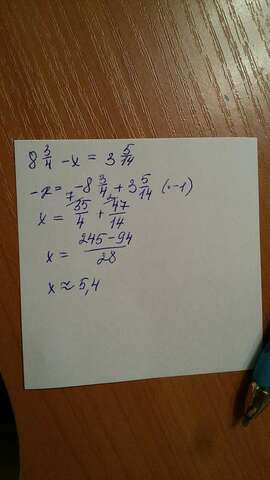 8 3/4 - x = 3 5/14
-x = -8 3/4 + 3 5/14 (·-1)
x = 7/ 35/4 + 2/ 47/14
x = (245-94)/28
x ≈ 5,4